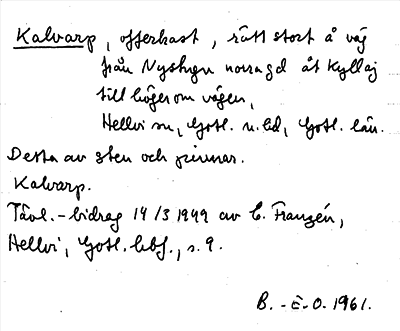 Kalvarp, offerkast, rätt stort å väg
från Nystugu norragd åt Kyllaj
till höger om vägen,
Hellvi sn, Gotl. n. hd, Gotl. län.
Detta av sten och pinnar.
Kalvarp.
Tävl.-bidrag 14/3 1949 av C. Franzén,
Hellvi, Gotl. hbf., s. 9.
B.-E.O. 1961.